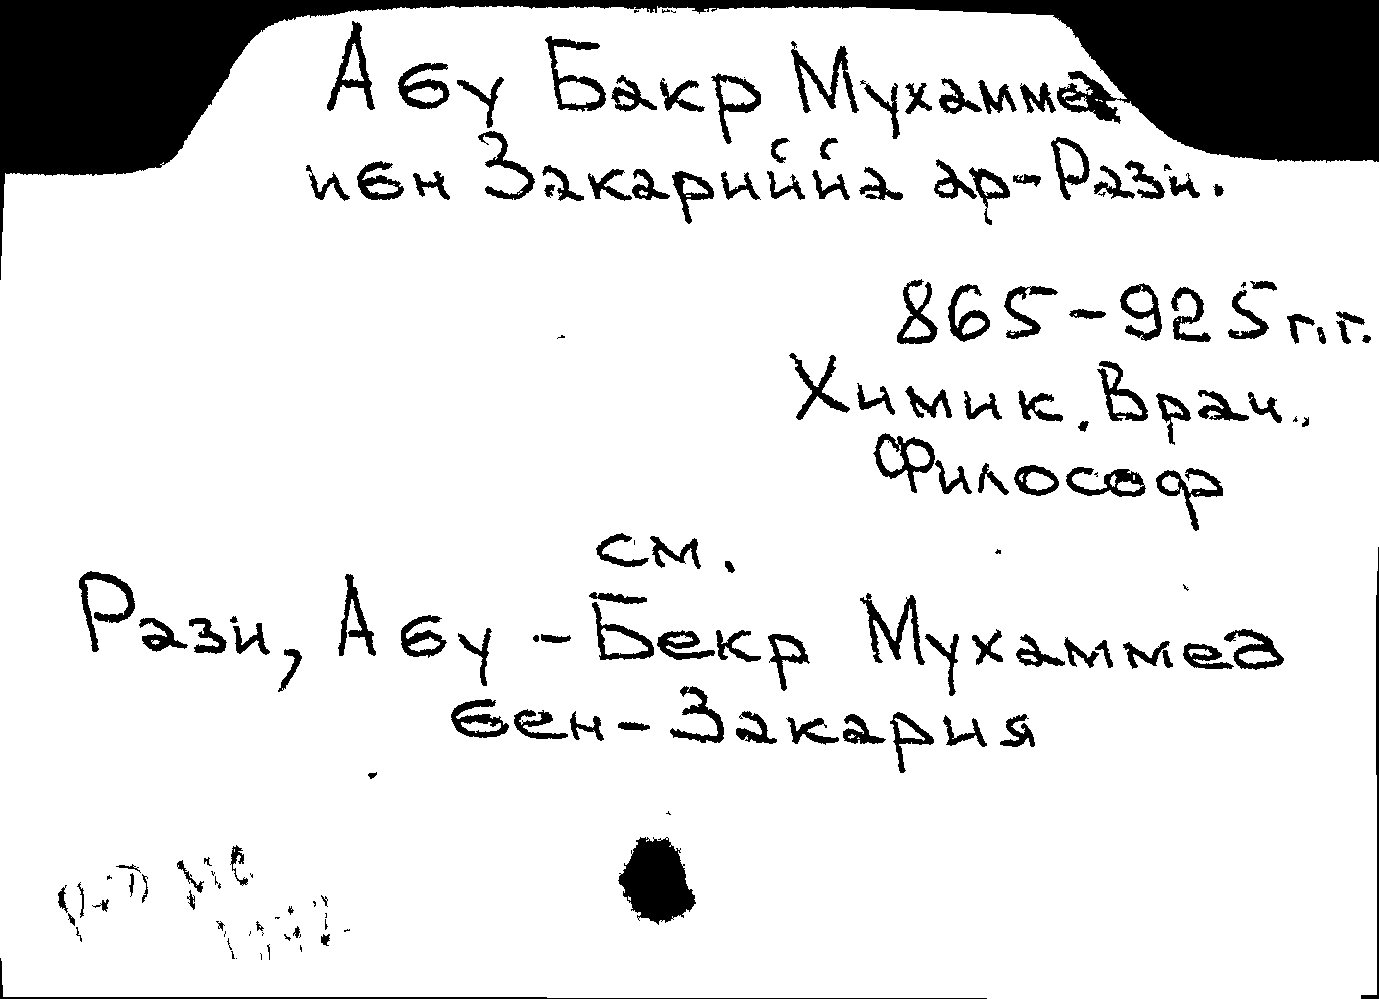 Абу Бакр Мухаммед
ибн Закарийй̆а ар-Рази.
865-925 г.г.
Химик. Врач.
Философ
см.
Рази, Абу-Бекр Мухаммед
бен-Закария